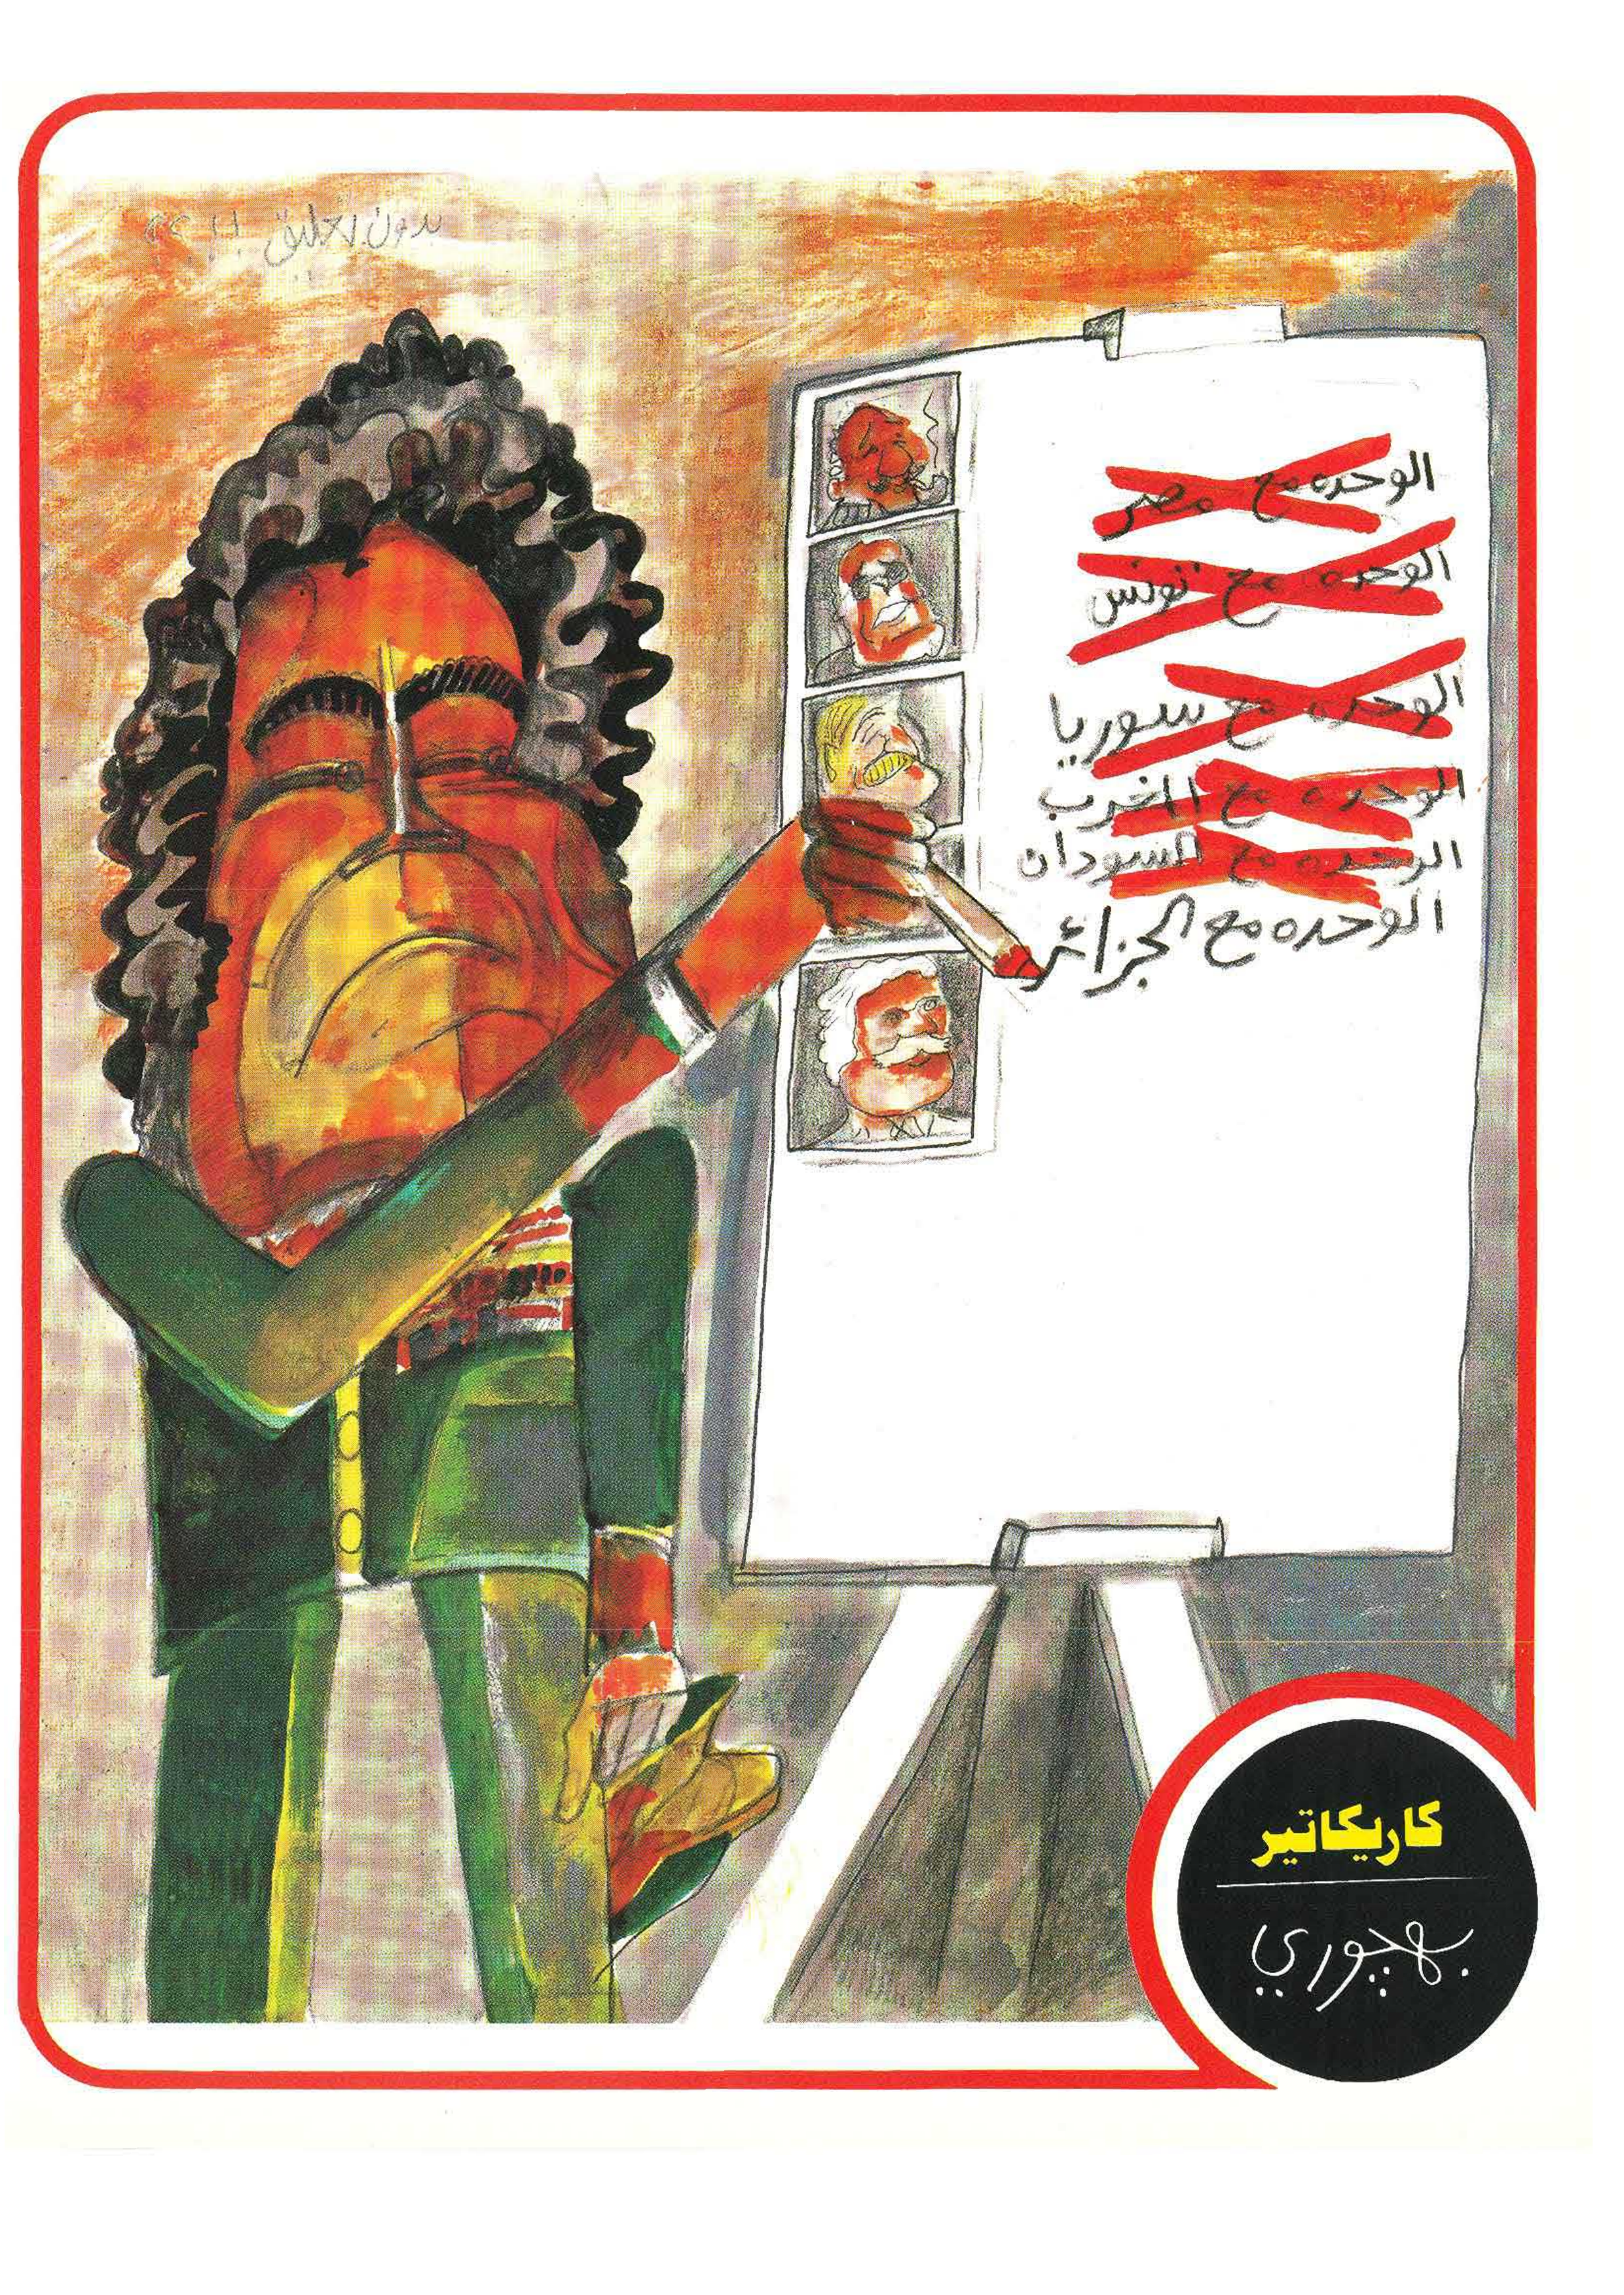 بدون تعليق !! ؟؟
الوحده مع مصر
الوحده مع تونس
الوحده مع سوريا
الوحده مع المغرب
الوحده مع السودان
الوحده مع الجزائر
كاريكاتير
بهچوري